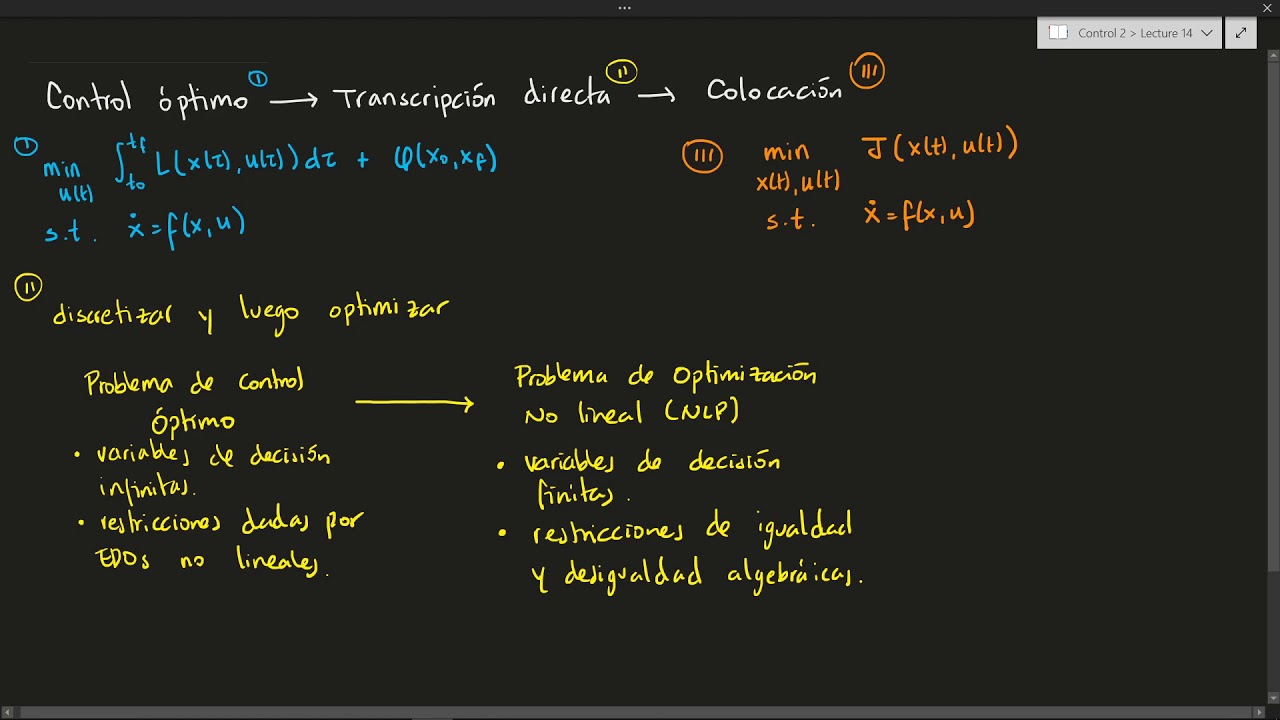 Control 2 > Lecture 14
Control óptimo ① → Transcripción directa Ⅱ → Colocación Ⅲ
① min u(t) ∫ t0 tf L(x(τ), u(τ)) dτ + φ(x0, xf)
s.t. ẋ = f(x, u)
Ⅲ min x(t), u(t) J(x(t), u(t))
s.t. ẋ = f(x, u)
Ⅱ
discretizar y luego optimizar
Problema de control
Óptimo
• variables de decisión
infinitas.
• restricciones dadas por
EDOs no lineales.
→
Problema de Optimización
No lineal (NLP)
• variables de decisión
finitas.
• restricciones de igualdad
y desigualdad algebráicas.